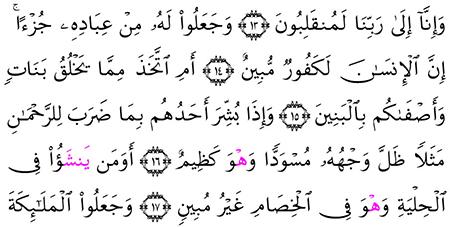 وَإِنَّآ إِلَىٰ رَبِّنَا لَمُنقَلِبُونَ ۝١٣ وَجَعَلُوا۟ لَهُۥ مِنْ عِبَادِهِۦ جُزْءًا ۚ
إِنَّ ٱلْإِنسَـٰنَ لَكَفُورٌ مُّبِينٌ ۝١٤ أَمِ ٱتَّخَذَ مِمَّا يَخْلُقُ بَنَاتٍ
وَأَصْفَىٰكُم بِٱلْبَنِينَ ۝١٥ وَإِذَا بُشِّرَ أَحَدُهُم بِمَا ضَرَبَ لِلرَّحْمَـٰنِ
مَثَلًا ظَلَّ وَجْهُهُۥ مُسْوَدًّا وَهْوَ كَظِيمٌ ۝١٦ أَوَمَن يَنشَؤُا۟ فِى
ٱلْحِلْيَةِ وَهْوَ فِى ٱلْخِصَامِ غَيْرُ مُبِينٍ ۝١٧ وَجَعَلُوا۟ ٱلْمَلَـٰٓئِكَةَ